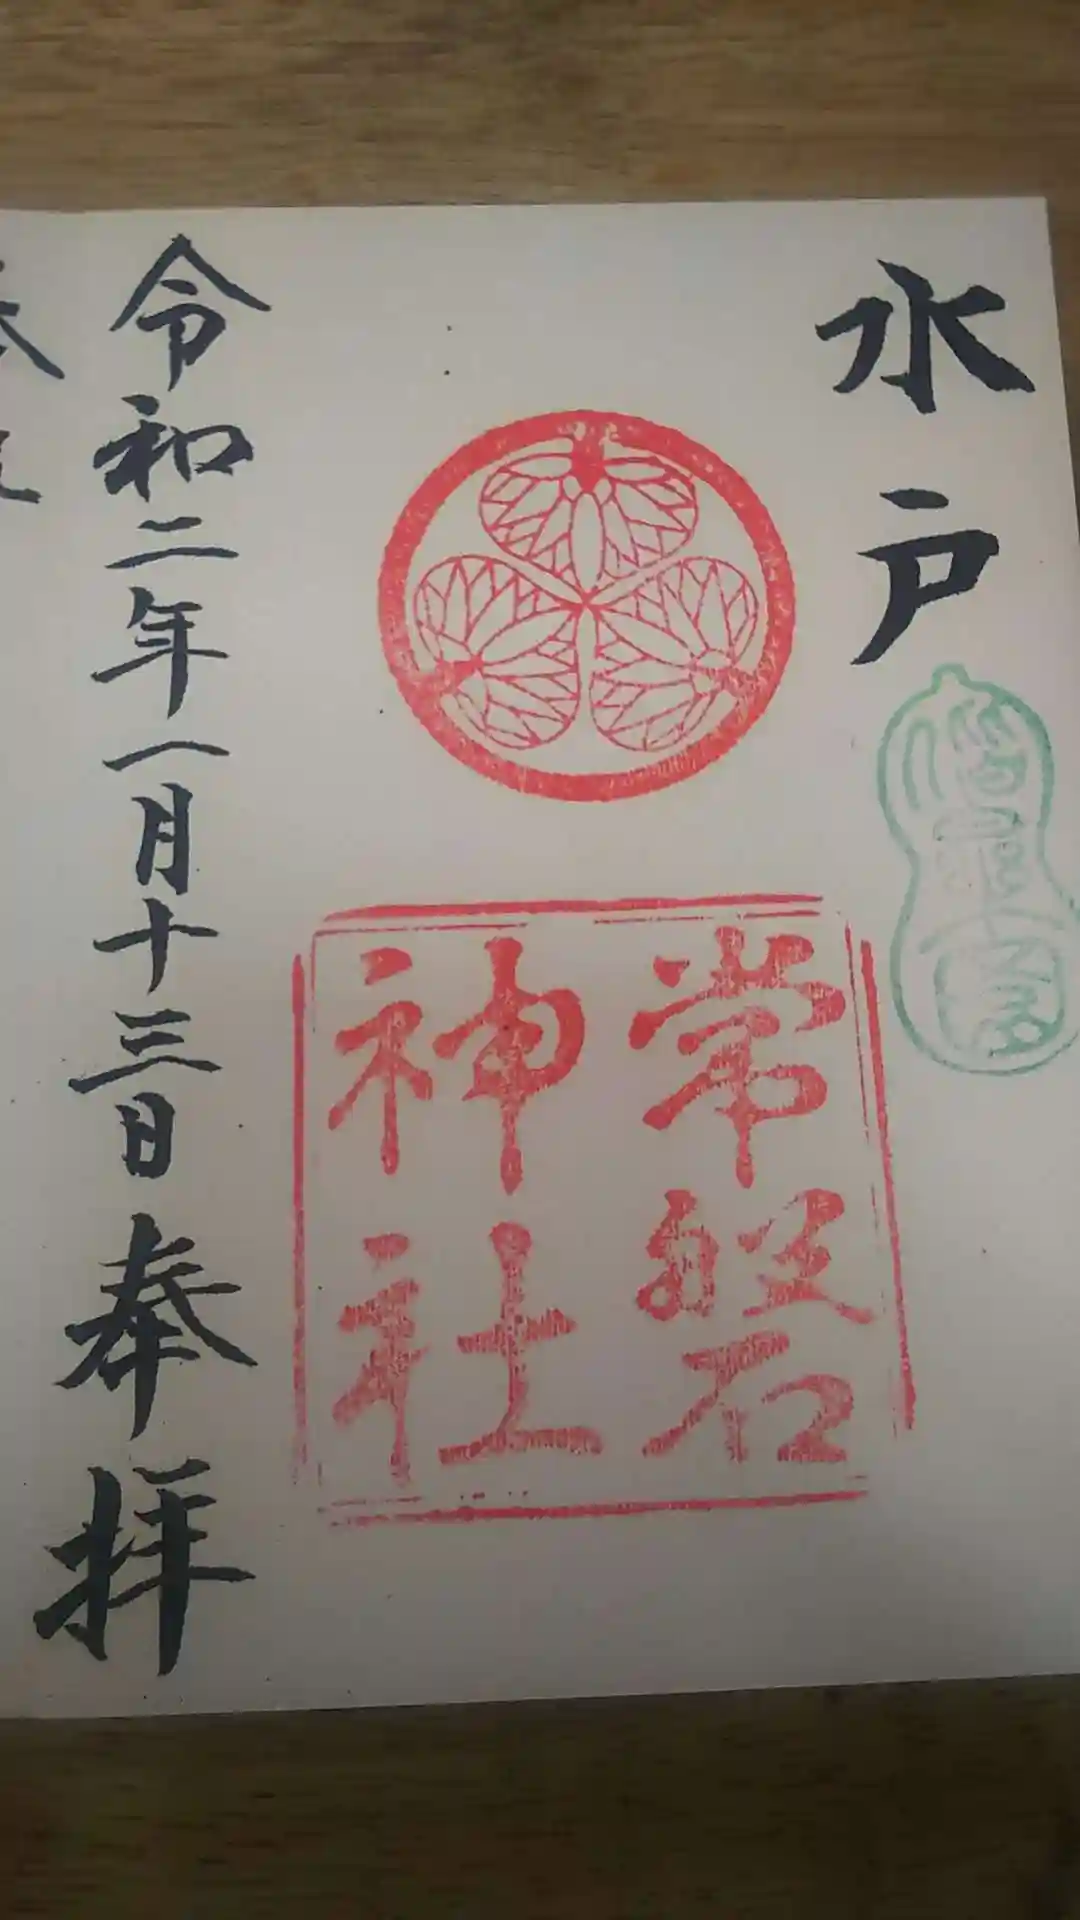 水戸
常磐
神社
令和二年一月十三日 奉拝